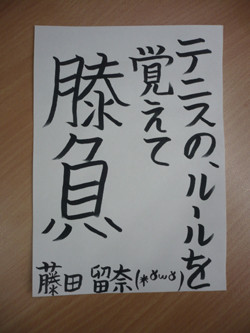 テニスの、ルールを
覚えて
滕負
藤田 留奈(*ฅωฅ)